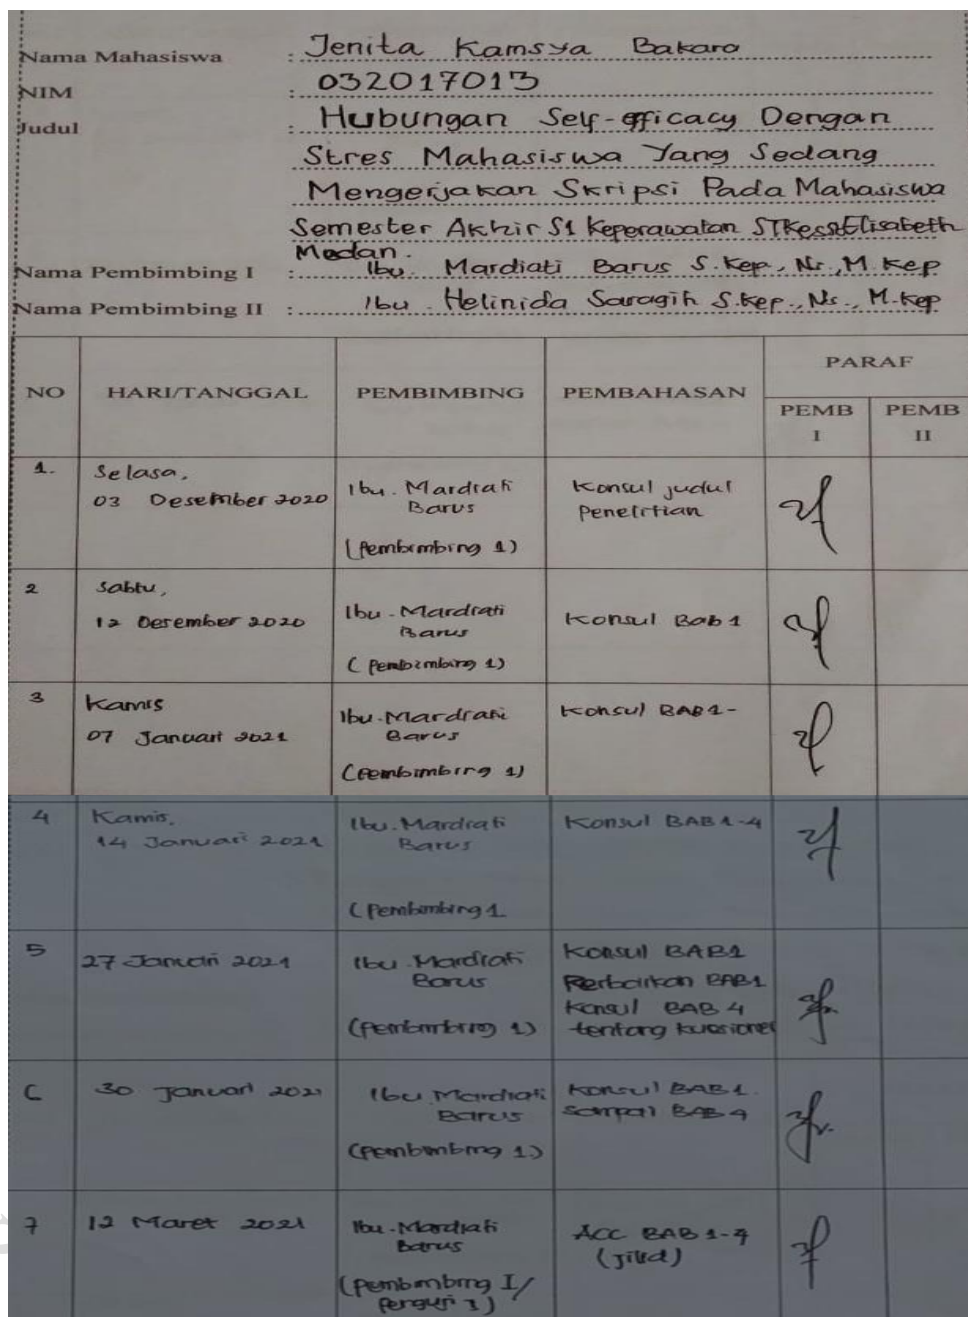 Nama Mahasiswa : Jenita Kamsya Bakara
NIM : 032017013
Judul : Hubungan Self-efficacy Dengan
Stres Mahasiswa Yang Sedang
Mengerjakan Skripsi Pada Mahasiswa
Semester Akhir S1 Keperawatan STIKes Elisabeth
Medan.
Nama Pembimbing I : Ibu Mardiati Barus S.Kep., Ns., M.Kep
Nama Pembimbing II : Ibu. Helinida Saragih S.Kep., Ns., M.Kep
NO HARI/TANGGAL PEMBIMBING PEMBAHASAN PARAF
PEMB I PEMB II
1. Selasa,
03 Desember 2020
Ibu. Mardiati
Barus
(Pembimbing 1)
Konsul judul
Penelitian
2 Sabtu,
12 Desember 2020
Ibu. Mardiati
Barus
(Pembimbing 1)
Konsul Bab 1
3 Kamis
07 Januari 2021
Ibu. Mardiati
Barus
(Pembimbing 1)
Konsul BAB 1-
4 Kamis,
14 Januari 2021
Ibu. Mardiati
Barus
(Pembimbing 1
Konsul BAB 1-4
5 27 Januari 2021
Ibu Mardiati
Barus
(Pembimbing 1)
Konsul BAB1
Perbaikan BAB1
Konsul BAB 4
tentang kuesioner
6 30 Januari 2021
Ibu Mardiati
Barus
(Pembimbing 1)
Konsul BAB 1.
sampai BAB 4
7 12 Maret 2021
Ibu. Mardiati
Barus
(Pembimbing I/
Penguji 1)
ACC BAB 1-4
(Jilid)